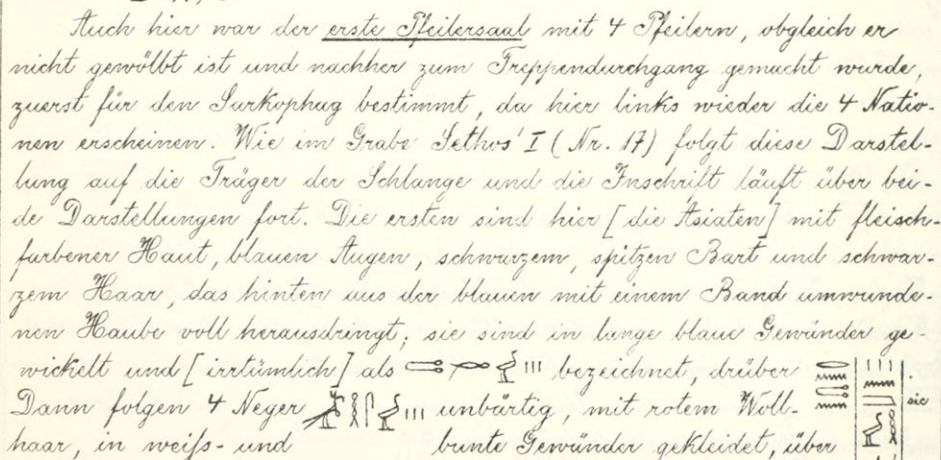 Auch hier war der erste Pfeilersaal mit 4 Pfeilern, obgleich er
nicht gewölbt ist und nachher zum Treppendurchgang gemacht wurde,
zuerst für den Sarkophag bestimmt, da hier links wieder die 4 Natio-
nen erscheinen. Wie im Grabe Sethos' I (Nr. 17) folgt diese Darstel-
lung auf die Träger der Schlange und die Inschrift läuft über bei-
de Darstellungen fort. Die ersten sind hier [die Asiaten] mit fleisch-
farbener Haut, blauen Augen, schwarzem, spitzen Bart und schwar-
zem Haar, das hinten aus der blauen mit einem Band umwunde-
nen Haube voll herausdringt; sie sind in lange blaue Gewänder ge-
wickelt und [irrtümlich] als bezeichnet, drüber
Dann folgen 4 Neger unbärtig, mit rotem Woll- sie
haar, in weiß- und bunte Gewänder gekleidet, über